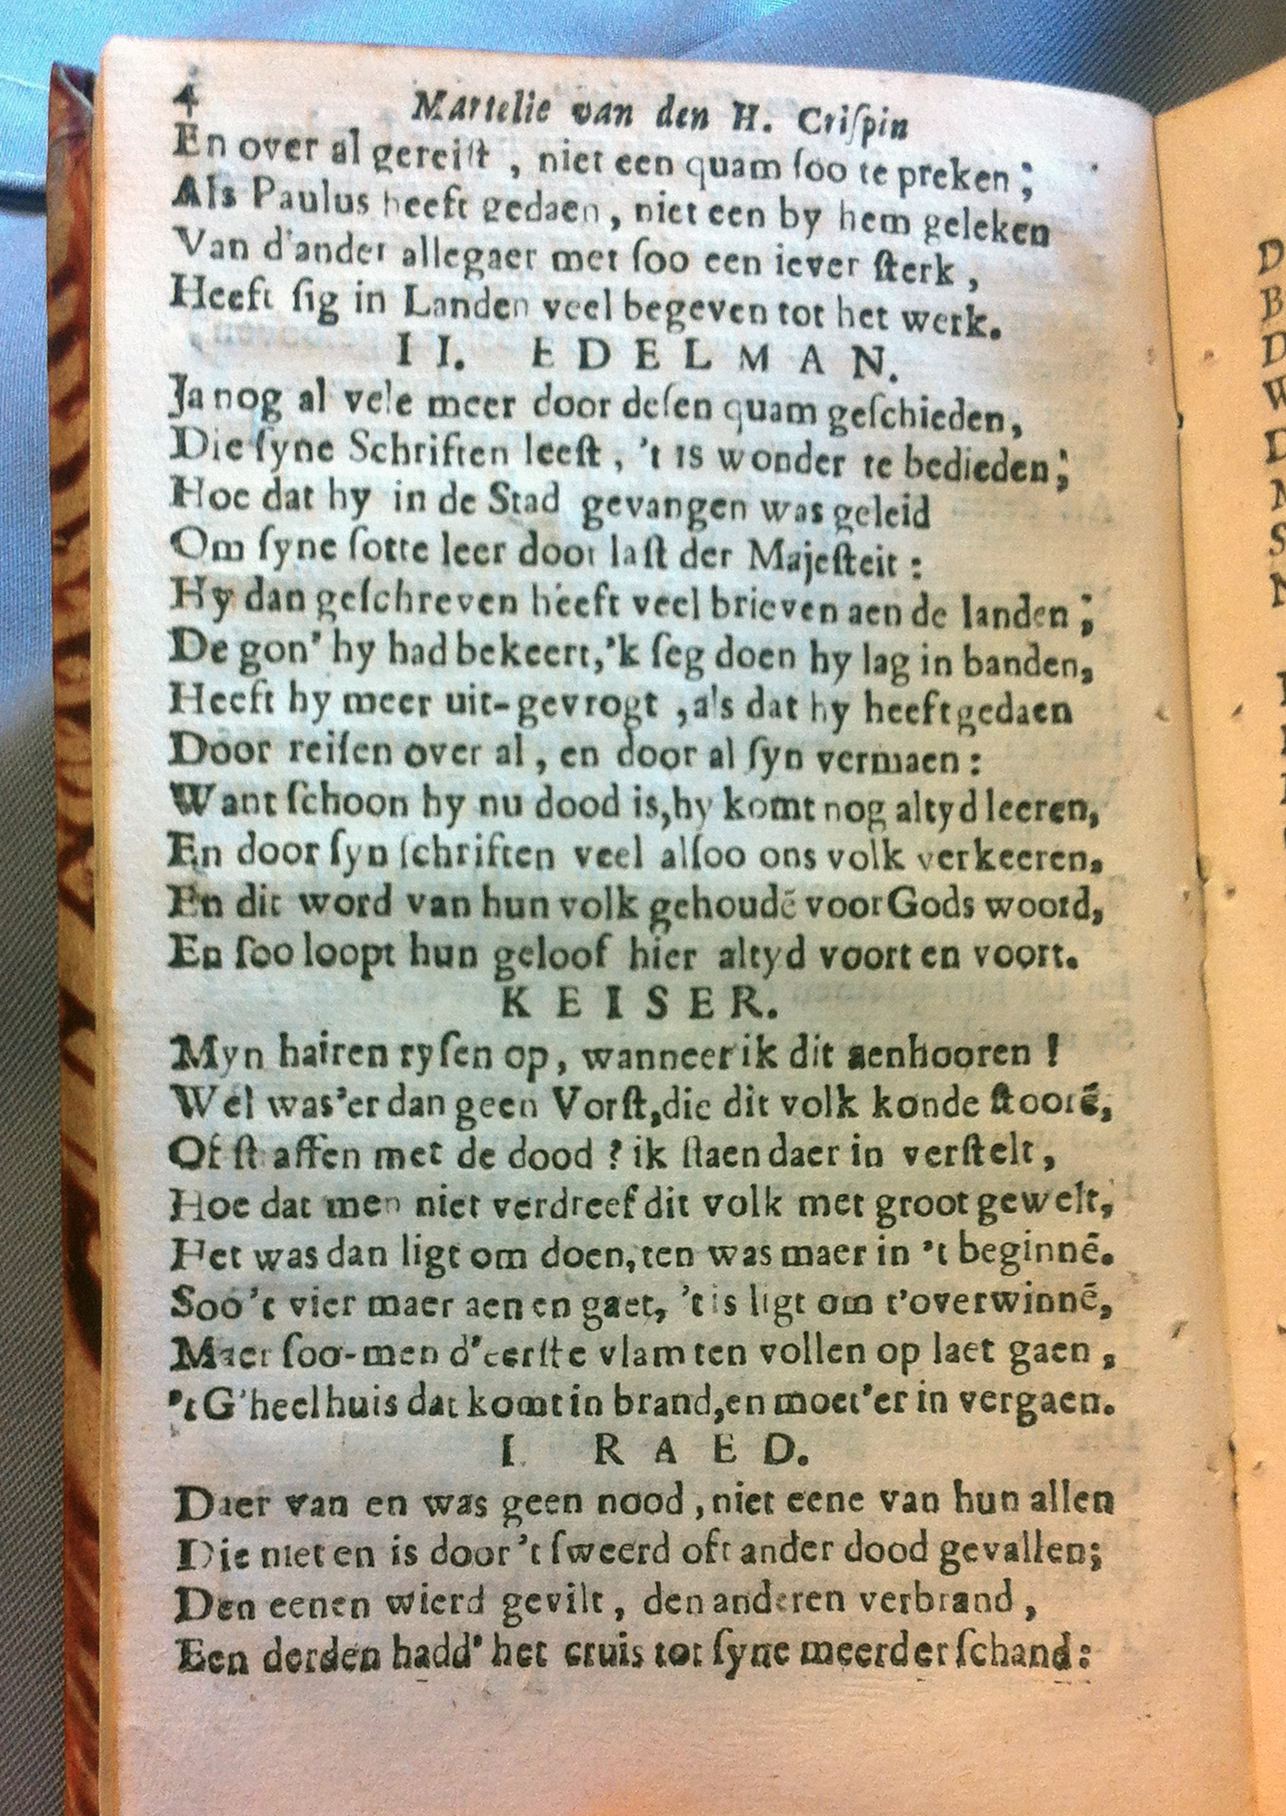 4
Martelie van den H. Criſpin
En over al gereiſt, niet een quam ſoo te preken;
Als Paulus heeft gedaen, niet een by hem geleken
Van d'ander allegaer met ſoo een iever ſterk,
Heeft ſig in Landen veel begeven tot het werk.
II. EDELMAN.
Ja nog al vele meer door deſen quam geſchieden,
Die ſyne Schriften leeſt, 't is wonder te bedieden;
Hoe dat hy in de Stad gevangen was geleid
Om ſyne ſotte leer door laſt der Majeſteit:
Hy dan geſchreven heeft veel brieven aen de landen;
De gon' hy had bekeert, 'k ſeg doen hy lag in banden,
Heeft hy meer uit-gevrogt, als dat hy heeft gedaen
Door reiſen over al, en door al ſyn vermaen:
Want ſchoon hy nu dood is, hy komt nog altyd leeren,
En door ſyn ſchriften veel alſoo ons volk verkeeren,
En dit word van hun volk gehoudē voor Gods woord,
En ſoo loopt hun geloof hier altyd voort en voort.
KEISER.
Myn hairen ryſen op, wanneer ik dit aenhooren!
Wel was'er dan geen Vorſt, die dit volk konde ſtoorē,
Of ſtraffen met de dood? ik ſtaen daer in verſtelt,
Hoe dat men niet verdreef dit volk met groot gewelt,
Het was dan ligt om doen, ten was maer in 't beginnē.
Soo 't vier maer aen en gaet, 't is ligt om t'overwinnē,
Maer ſoo-men d'eerſte vlam ten vollen op laet gaen,
't G'heel huis dat komt in brand, en moet'er in vergaen.
I. RAED.
Daer van en was geen nood, niet eene van hun allen
Die niet en is door 't ſweerd oft ander dood gevallen;
Den eenen wierd gevilt, den anderen verbrand,
Een derden hadd' het cruis tot ſyne meerder ſchand: